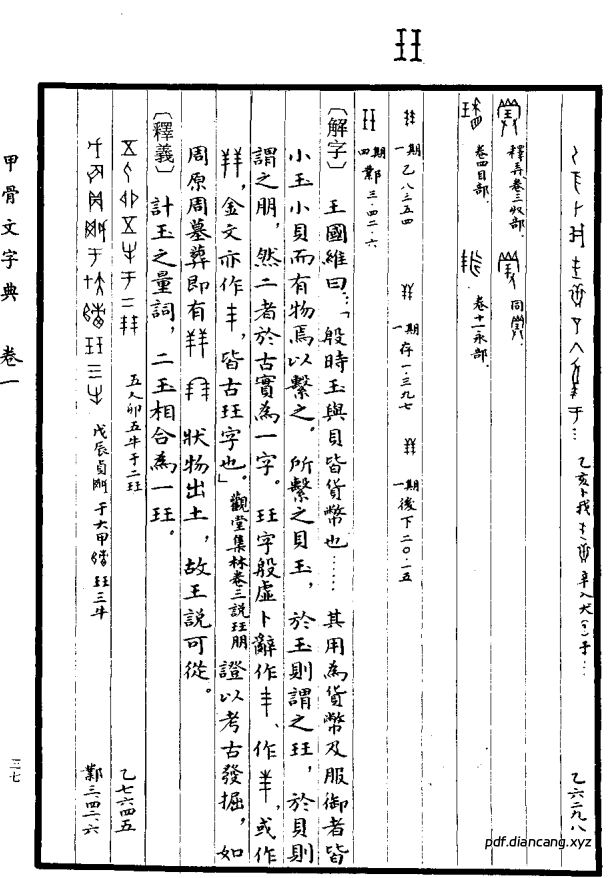 玨
乙亥卜我…辛入犬(?)于… 乙六二九八
釋弄卷三収部. 同
卷四目部. 卷十一永部.
一期 乙八三五四 一期 存一·三九七 一期 後下二〇·一五
四期 鄴三·四二·六
〔解字〕王國維曰:「殷時玉與貝皆貨幣也……其用為貨幣及服御者皆
小玉小貝而有物焉以繫之。所繫之貝玉,於玉則謂之玨,於貝則
謂之朋,然二者於古實為一字。玨字殷虛卜辭作丰、作,或作
,金文亦作丰,皆古玨字也。」觀堂集林卷三說玨朋 證以考古發掘,如
周原周墓葬即有 狀物出土,故王說可從。
〔釋義〕計玉之量詞,二玉相合為一玨。
五人卯五牛于二玨 乙七六四五
戊辰貞 于大甲 玨三牛 鄴三·四二·六
甲骨文字典 卷一
三七
pdf.diancang.xyz